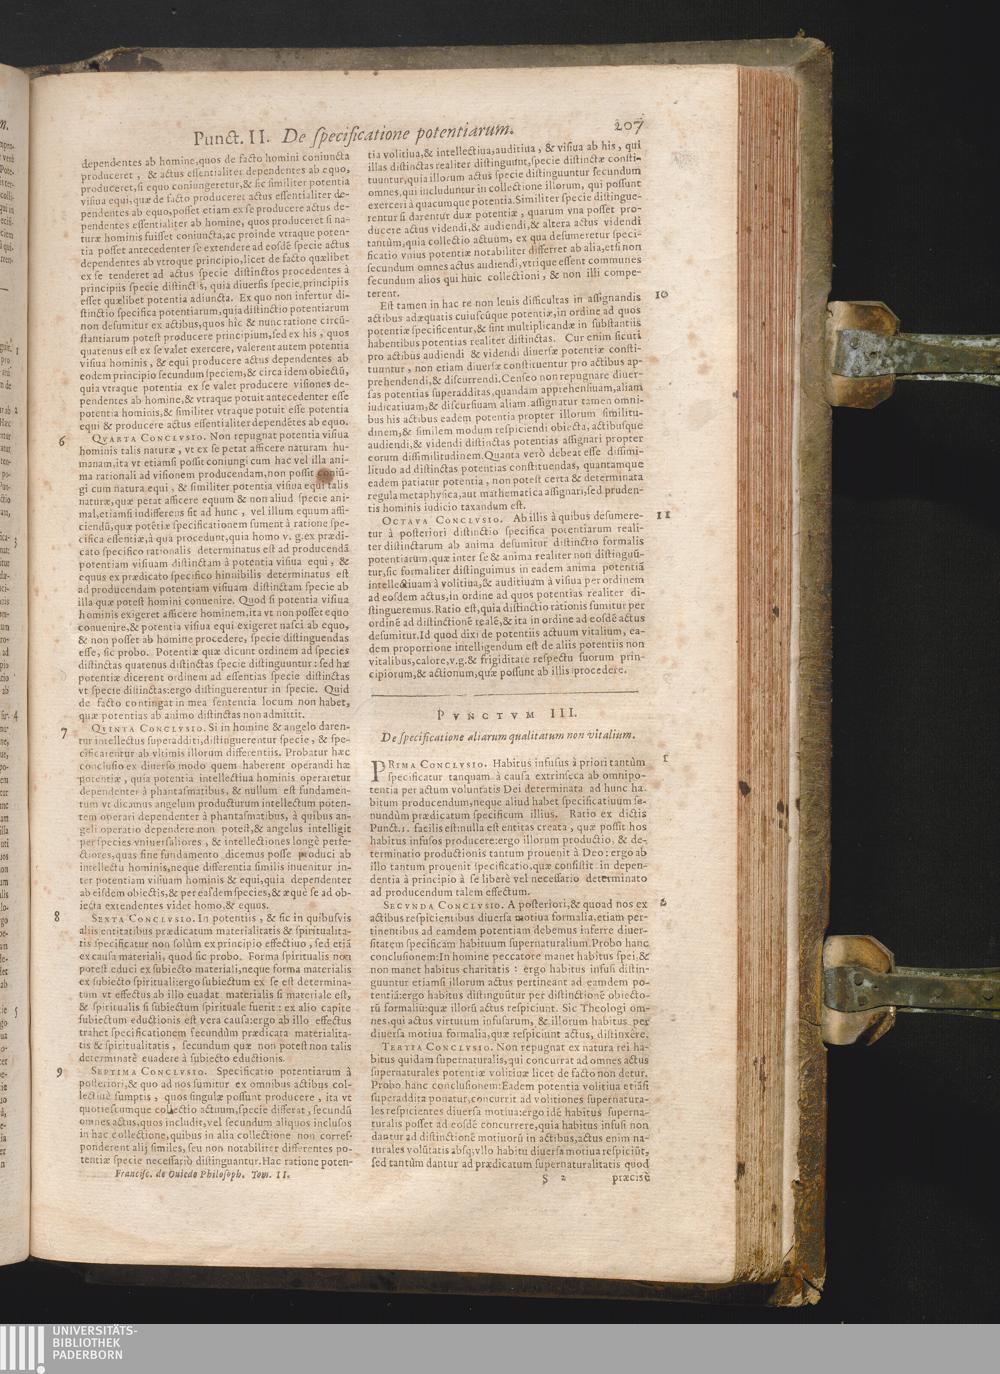 Punct. II. De specificatione potentiarum. 207
dependentes ab homine, quos de facto homini coniuncta
produceret, & actus essentialiter dependentes ab equo,
produceret, si equo coniungeretur, & sic similiter potentia
visiua equi, quæ de facto produceret actus essentialiter de-
pendentes ab equo, posset etiam ex se producere actus de-
pendentes essentialiter ab homine, quos produceret si na-
turæ hominis fuisset coniuncta, ac proinde vtraque poten-
tia posset antecedenter se extendere ad eosdē specie actus
dependentes ab vtroque principio, licet de facto quælibet
ex se tenderet ad actus specie distinctos procedentes à
principiis specie distinctis, quia diuersis specie, principiis
esset quælibet potentia adiuncta. Ex quo non infertur di-
stinctio specifica potentiarum, quia distinctio potentiarum
non desumitur ex actibus, quos hic & nunc ratione circū-
stantiarum potest producere principium, sed ex his, quos
quatenus est ex se valet exercere, valerent autem potentia
visiua hominis, & equi producere actus dependentes ab
eodem principio secundum speciem, & circa idem obiectū,
quia vtraque potentia ex se valet producere visiones de-
pendentes ab homine, & vtraque potuit antecedenter esse
potentia hominis, & similiter vtraque potuit esse potentia
equi & producere actus essentialiter dependētes ab equo.
6 QVARTA CONCLVSIO. Non repugnat potentia visiua
hominis talis naturæ, vt ex se petat afficere naturam hu-
manam, ita vt etiamsi possit coniungi cum hac vel illa ani-
ma rationali ad visionem producendam, non possit coniū-
gi cum natura equi, & similiter potentia visiua equi talis
naturæ, quæ petat afficere equum & non aliud specie ani-
mal, etiamsi indifferens sit ad hunc, vel illum equum affi-
ciendū, quæ potētiæ specificationem sument à ratione spe-
cifica essentiæ, à qua procedunt, quia homo v. g. ex prædi-
cato specifico rationalis determinatus est ad producendā
potentiam visiuam distinctam à potentia visiua equi, &
equus ex prædicato specifico hinnibilis determinatus est
ad producendam potentiam visiuam distinctam specie ab
illa quæ potest homini conuenire. Quod si potentia visiua
hominis exigeret afficere hominem, ita vt non posset equo
conuenire, & potentia visiua equi exigeret nasci ab equo,
& non posset ab homine procedere, specie distinguendas
esse, sic probo. Potentiæ quæ dicunt ordinem ad species
distinctas quatenus distinctas specie distinguuntur: sed hæ
potentiæ dicerent ordinem ad essentias specie distinctas
vt specie distinctas: ergo distinguerentur in specie. Quid
de facto contingat in mea sententia locum non habet,
quæ potentias ab animo distinctas non admittit.
7 QVINTA CONCLVSIO. Si in homine & angelo daren-
tur intellectus superadditi, distinguerentur specie, & spe-
cificarentur ab vltimis illorum differentiis. Probatur hæc
conclusio ex diuerso modo quem haberent operandi hæ
potentiæ, quia potentia intellectiua hominis operaretur
dependenter à phantasmatibus, & nullum est fundamen-
tum vt dicamus angelum producturum intellectum poten-
tem operari dependenter à phantasmatibus, à quibus an-
geli operatio dependere non potest, & angelus intelligit
per species vniuersaliores, & intellectiones longè perfe-
ctiores, quas sine fundamento dicemus posse produci ab
intellectu hominis, neque differentia similis inuenitur in-
ter potentiam visiuam hominis & equi, quia dependenter
ab eisdem obiectis, & per easdem species, & æquè se ad ob-
iecta extendentes videt homo, & equus.
8 SEXTA CONCLVSIO. In potentiis, & sic in quibusvis
aliis entitatibus prædicatum materialitatis & spiritualita-
tis specificatur non solùm ex principio effectiuo, sed etiā
ex causa materiali, quod sic probo. Forma spiritualis non
potest educi ex subiecto materiali, neque forma materialis
ex subiecto spirituali: ergo subiectum ex se est determina-
tum vt effectus ab illo euadat materialis si materiale est,
& spiritualis si subiectum spirituale fuerit: ex alio capite
subiectum eductionis est vera causa: ergo ab illo effectus
trahet specificationem secundùm prædicata materialita-
tis & spiritualitatis, secundum quæ non potest non talis
determinatè euadere à subiecto eductionis.
9 SEPTIMA CONCLVSIO. Specificatio potentiarum à
posteriori, & quo ad nos sumitur ex omnibus actibus col-
lectiuè sumptis, quos singulæ possunt producere, ita vt
quotiescumque collectio actuum, specie differat, secundū
omnes actus, quos includit, vel secundum aliquos inclusos
in hac collectione, quibus in alia collectione non corres-
ponderent alij similes, seu non notabiliter differentes po-
tentiæ specie necessariò distinguantur. Hac ratione poten-
Francisc. de Ouiedo Philosoph. Tom. II.
tia volitiua, & intellectiua; auditiua, & visiua ab his, qui
illas distinctas realiter distinguunt, specie distinctæ consti-
tuuntur, quia illorum actus specie distinguuntur secundum
omnes, qui includuntur in collectione illorum, qui possunt
exerceri à quacumque potentia. Similiter specie distingue-
rentur si darentur duæ potentiæ, quarum vna posset pro-
ducere actus videndi, & audiendi, & altera actus videndi
tantùm, quia collectio actuum, ex qua desumeretur speci-
ficatio vnius potentiæ notabiliter differret ab alia, etsi non
secundum omnes actus audiendi, vtrique essent communes
secundum alios qui huic collectioni, & non illi compe-
terent.
10 Est tamen in hac re non leuis difficultas in assignandis
actibus adæquatis cuiuscūque potentiæ, in ordine ad quos
potentiæ specificentur, & sint multiplicandæ in substantiis
habentibus potentias realiter distinctas. Cur enim sicuti
pro actibus audiendi & videndi diuersæ potentiæ consti-
tuuntur, non etiam diuersæ constituentur pro actibus ap-
prehendendi, & discurrendi. Censeo non repugnare diuer-
sas potentias superadditas, quandam apprehensiuam, aliam
iudicatiuam, & discursiuam aliam. assignatur tamen omni-
bus his actibus eadem potentia propter illorum similitu-
dinem, & similem modum respiciendi obiecta, actibusque
audiendi, & videndi distinctas potentias assignati propter
eorum dissimilitudinem. Quanta verò debeat esse dissimi-
litudo ad distinctas potentias constituendas, quantamque
eadem patiatur potentia, non potest certa & determinata
regula metaphysica, aut mathematica assignari, sed pruden-
tis hominis iudicio taxandum est.
11 OCTAVA CONCLVSIO. Ab illis à quibus desumere-
tur à posteriori distinctio specifica potentiarum reali-
ter distinctarum ab anima desumitur distinctio formalis
potentiarum, quæ inter se & anima realiter non distinguū-
tur, sic formaliter distinguimus in eadem anima potentiā
intellectiuam à volitiua, & auditiuam à visiua per ordinem
ad eosdem actus, in ordine ad quos potentias realiter di-
stingueremus. Ratio est, quia distinctio rationis sumitur per
ordinē ad distinctionē realē, & ita in ordine ad eosdē actus
desumitur. Id quod dixi de potentiis actuum vitalium, ea-
dem proportione intelligendum est de aliis potentiis non
vitalibus, calore, v. g. & frigiditate respectu suorum prin-
cipiorum, & actionum, quæ possunt ab illis procedere.
PVNCTVM III.
De specificatione aliarum qualitatum non vitalium.
1 PRIMA CONCLVSIO. Habitus infusus à priori tantùm
specificatur tanquam à causa extrinseca ab omnipo-
tentia per actum voluntatis Dei determinata ad hunc ha-
bitum producendum, neque aliud habet specificatiuum se-
cundùm prædicatum specificum illius. Ratio ex dictis
Punct. 1. facilis est: nulla est entitas creata, quæ possit hos
habitus infusos producere: ergo illorum productio, & de-
terminatio productionis tantum prouenit à Deo: ergo ab
illo tantum prouenit specificatio, quæ consistit in depen-
dentia à principio à se liberè vel necessariò determinato
ad producendum talem effectum.
2 SECVNDA CONCLVSIO. A posteriori, & quoad nos ex
actibus respicientibus diuersa motiua formalia, etiam per-
tinentibus ad eamdem potentiam debemus inferre diuer-
sitatem specificam habituum supernaturalium. Probo hanc
conclusionem: In homine peccatore manet habitus spei, &
non manet habitus charitatis: ergo habitus infusi distin-
guuntur etiamsi illorum actus pertineant ad eamdem po-
tentiā: ergo habitus distinguūtur per distinctionē obiecto-
rū formaliū: quæ illorū actus respiciunt. Sic Theologi om-
nes, qui actus virtutum infusarum, & illorum habitus per
diuersa motiua formalia, quæ respiciunt actus, distinxere.
TERTIA CONCLVSIO. Non repugnat ex natura rei ha-
bitus quidam supernaturalis, qui concurrat ad omnes actus
supernaturales potentiæ volitiuæ licet de facto non detur.
Probo hanc conclusionem: Eadem potentia volitiua etiāsi
superaddita ponatur, concurrit ad volitiones supernatura-
les respicientes diuersa motiua: ergo idē habitus superna-
turalis posset ad eosdē concurrere, quia habitus infusi non
dantur ad distinctionē motiuorū in actibus, actus enim na-
turales volūtatis absq; vllo habitu diuersa motiua respiciūt,
sed tantùm dantur ad prædicatum supernaturalitatis quod
S 2 præcisè
UNIVERSITÄTS-
BIBLIOTHEK
PADERBORN